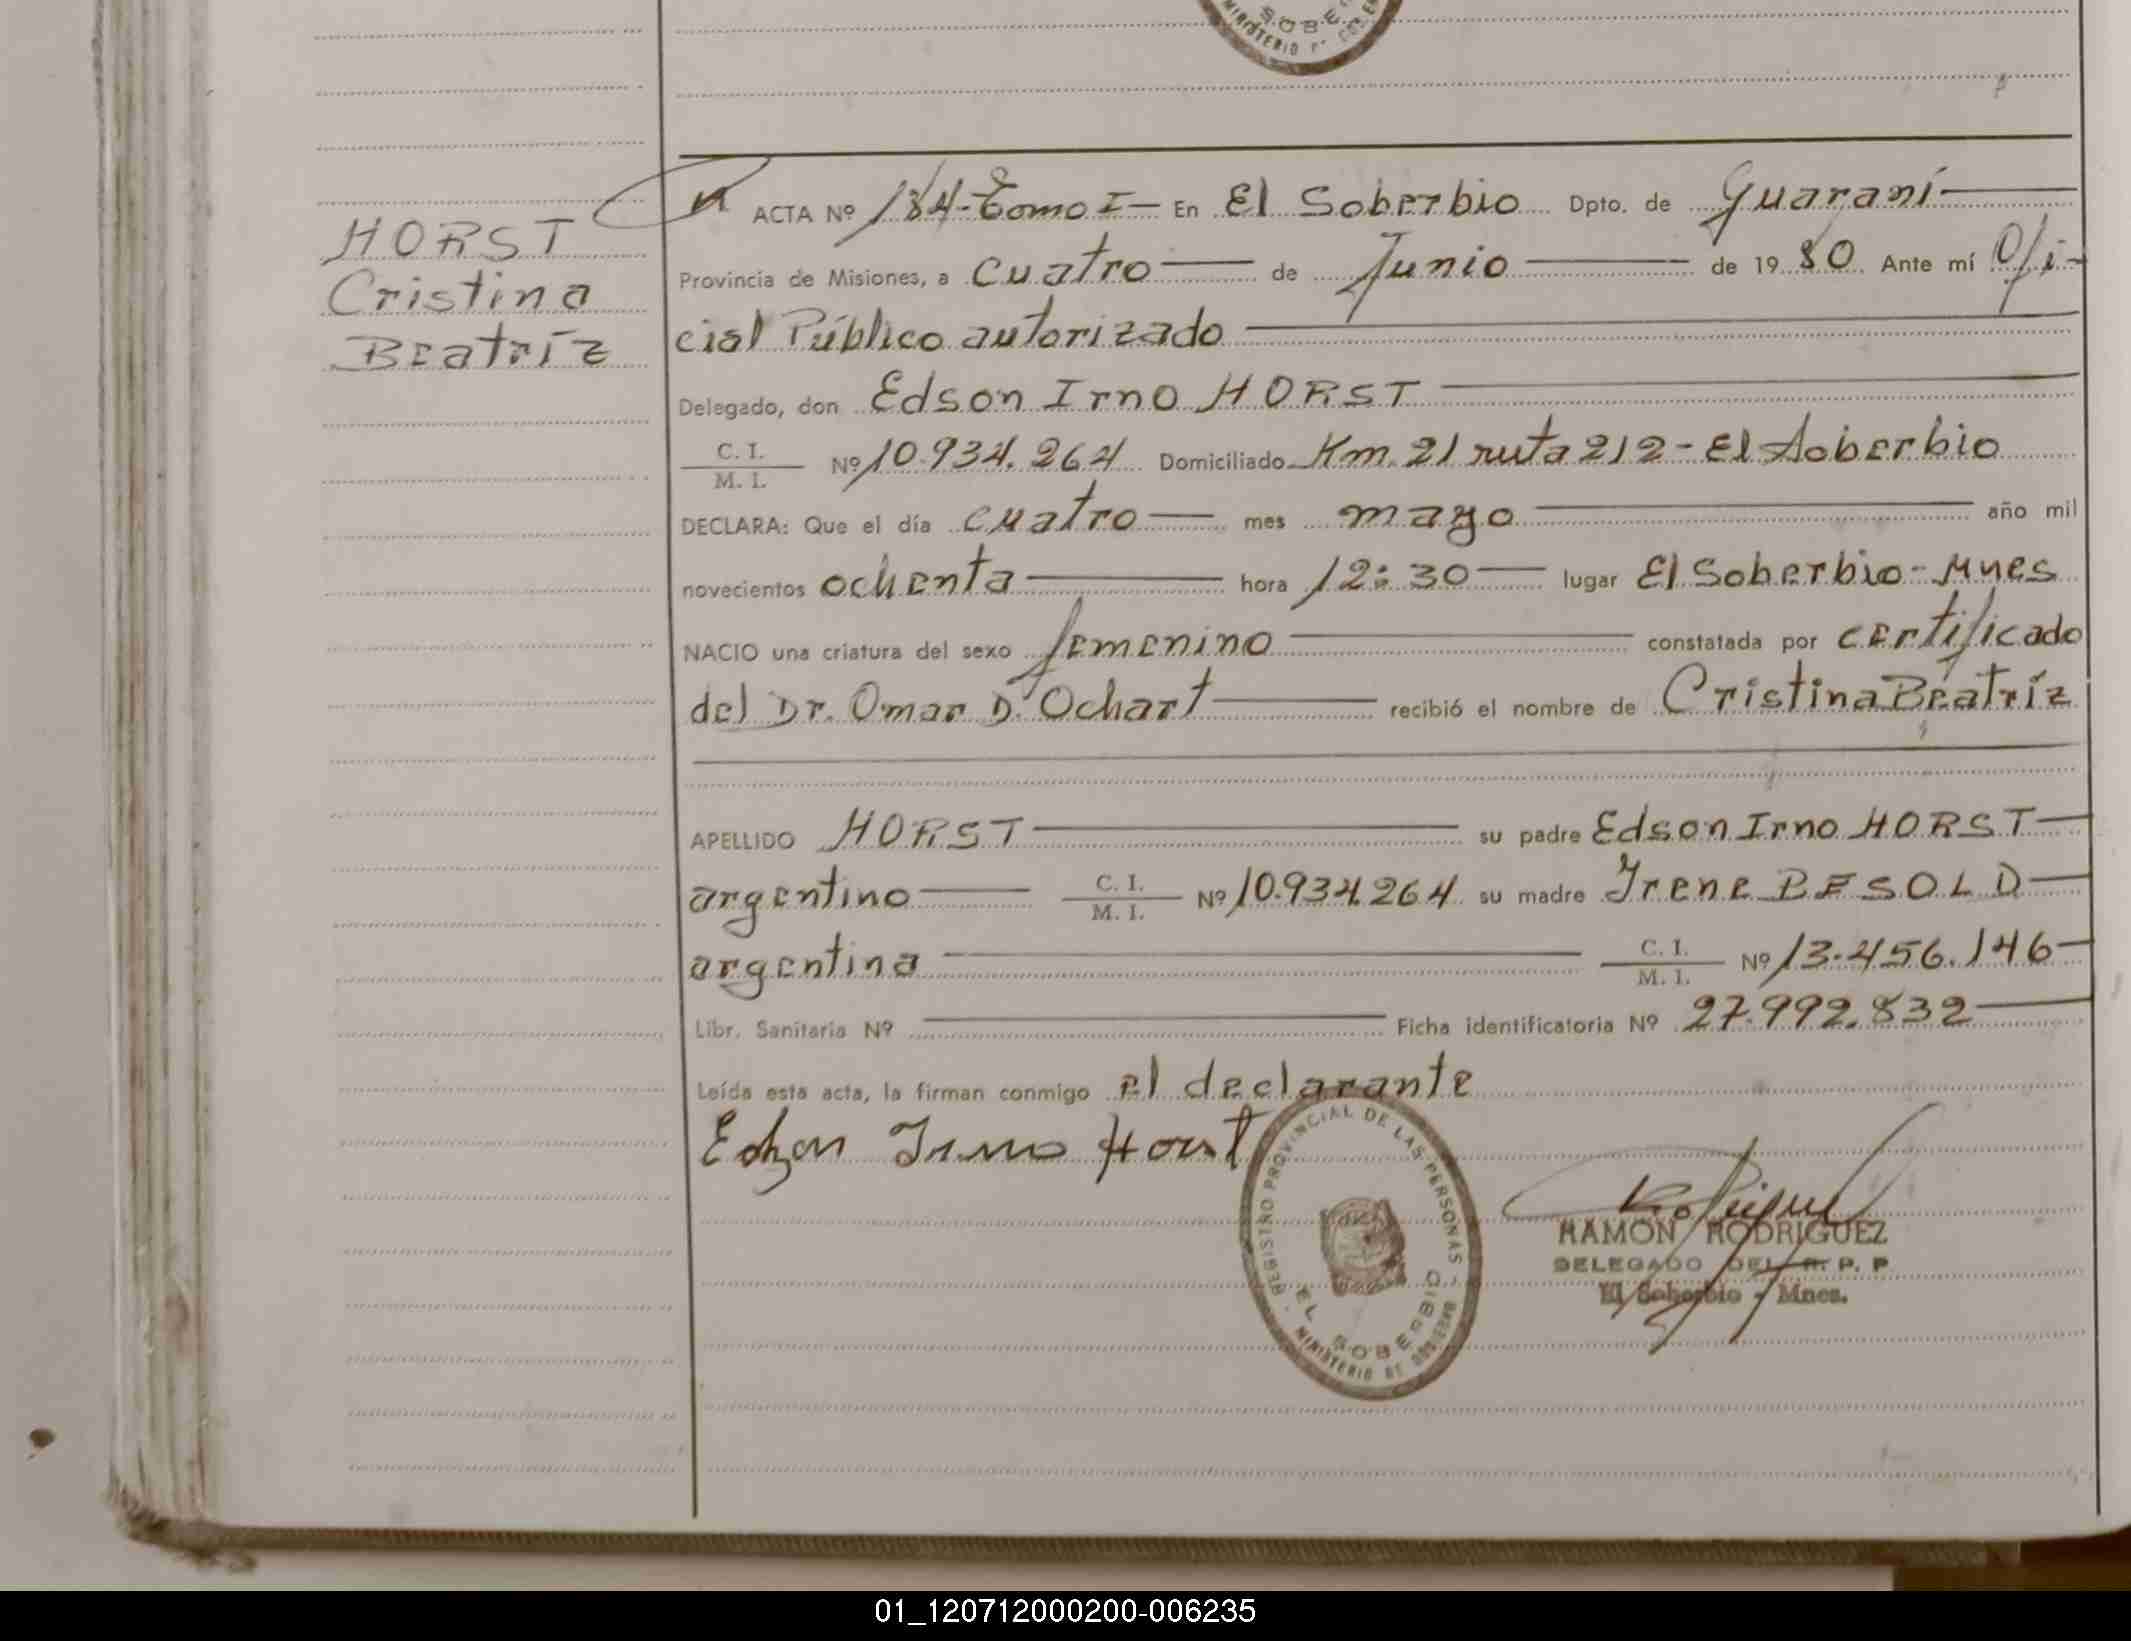 MINISTERIO
SOBE
HORST
Cristina
Beatríz
ACTA Nº 184-Tomo I- En El Soberbio Dpto. de Guaraní
Provincia de Misiones, a cuatro de Junio de 1980. Ante mí Ofi-
cial Público autorizado
Delegado, don Edson Irno HORST
C. I.
M. I.
Nº 10.934.264 Domiciliado Km. 21 ruta 212 - El Soberbio
DECLARA: Que el día cuatro mes mayo año mil
novecientos ochenta hora 12:30 lugar El Soberbio - Mnes
NACIO una criatura del sexo femenino constatada por certificado
del Dr. Omar D'Ochart recibió el nombre de Cristina Beatríz
APELLIDO HORST su padre Edson Irno HORST
argentino C. I. M. I. Nº 10.934.264 su madre Irene BESOLD
argentina C. I. M. I. Nº 13.456.146
Libr. Sanitaria Nº Ficha identificatoria Nº 27.992.832
Leída esta acta, la firman conmigo el declarante
Edson Irno Horst
REGISTRO PROVINCIAL DE LAS PERSONAS
EL SOBERBIO
MINISTERIO DE GOBIERNO
RAMON RODRIGUEZ
DELEGADO DEL R. P. P
El Soberbio - Mnes.
01_120712000200-006235